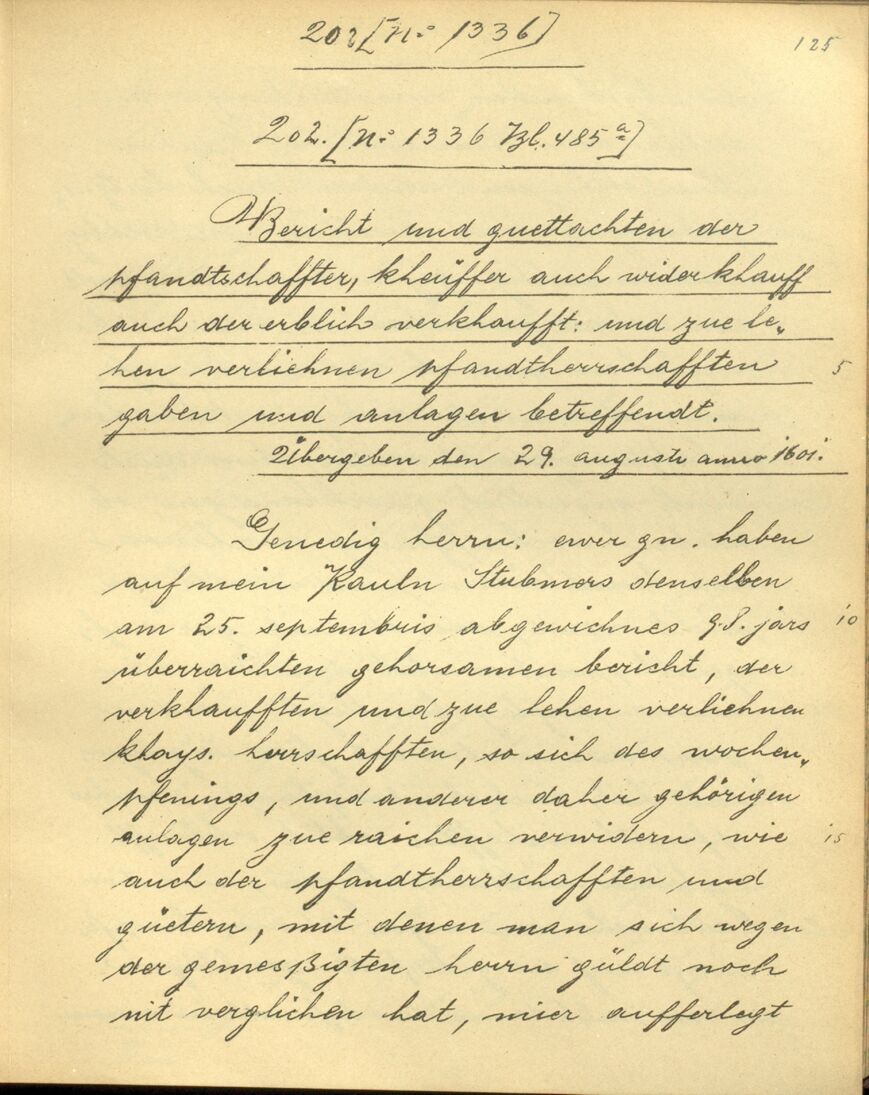 202 [N:o 1336]
125
202. [N:o 1336 Bl. 485 a]
Bericht und guettachten der
pfandtschaffter, kheüffer auch widerkhauff
auch der erblich verkhaufft: und zue le„
hen verliehnen pfandtherrschafften 5
gaben und anlagen betreffendt.
Übergeben den 29. augusti anno 1601.
Genedig herrn: ewer gn. haben
auf mein Kauln Stubmers denselben
am 25. septembris abgewichnes jars 10
überraichten gehorsamen bericht, der
verkhaufften und zue lehen verliehnen
khays. herrschafften, so sich des wochen„
pfenings, und anderer daher gehörigen
anlagen zue raichen verwidern, wie 15
auch der pfandtherrschafften und
güetern, mit denen man sich wegen
der gemeßigten herrn güldt noch
nit verglichen hat, mier aufferlegt